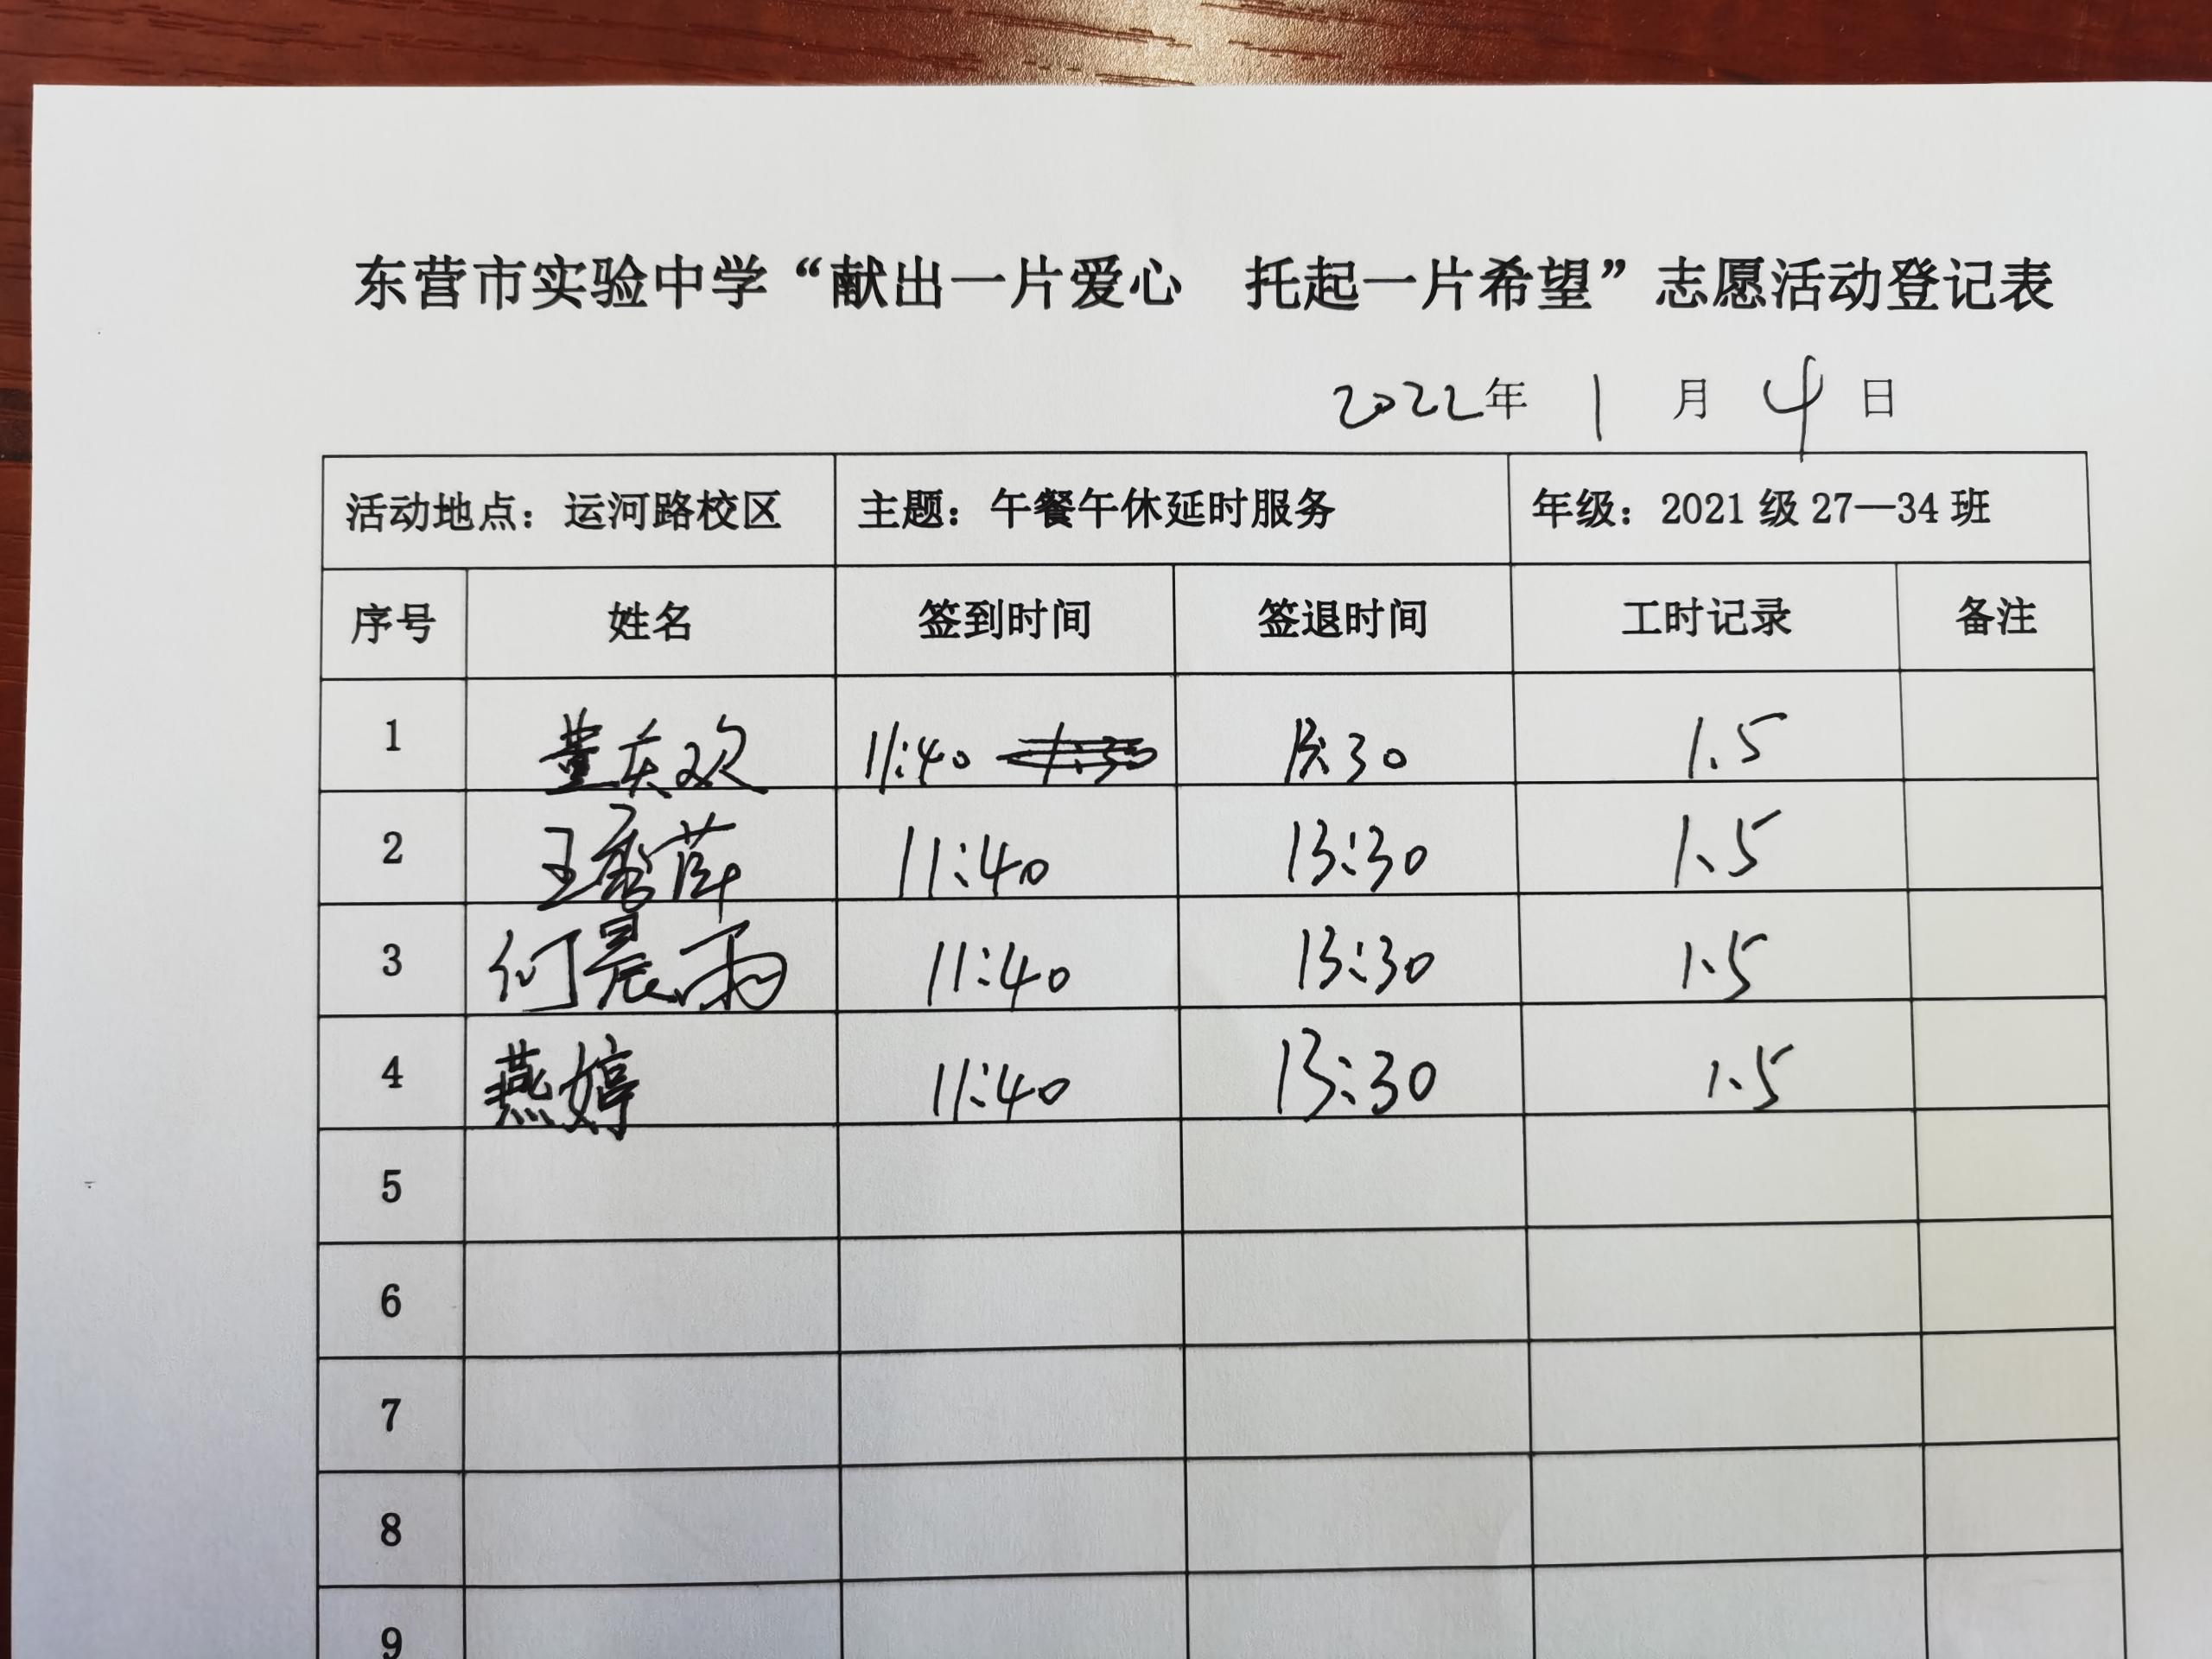 东营市实验中学“献出一片爱心 托起一片希望”志愿活动登记表
2022年 1 月 4 日
活动地点：运河路校区 主题：午餐午休延时服务 年级：2021级27—34班
序号 姓名 签到时间 签退时间 工时记录 备注
1 董庆欢 11:40 13:30 1.5
2 王秀萍 11:40 13:30 1.5
3 何晨雨 11:40 13:30 1.5
4 燕婷 11:40 13:30 1.5
5
6
7
8
9